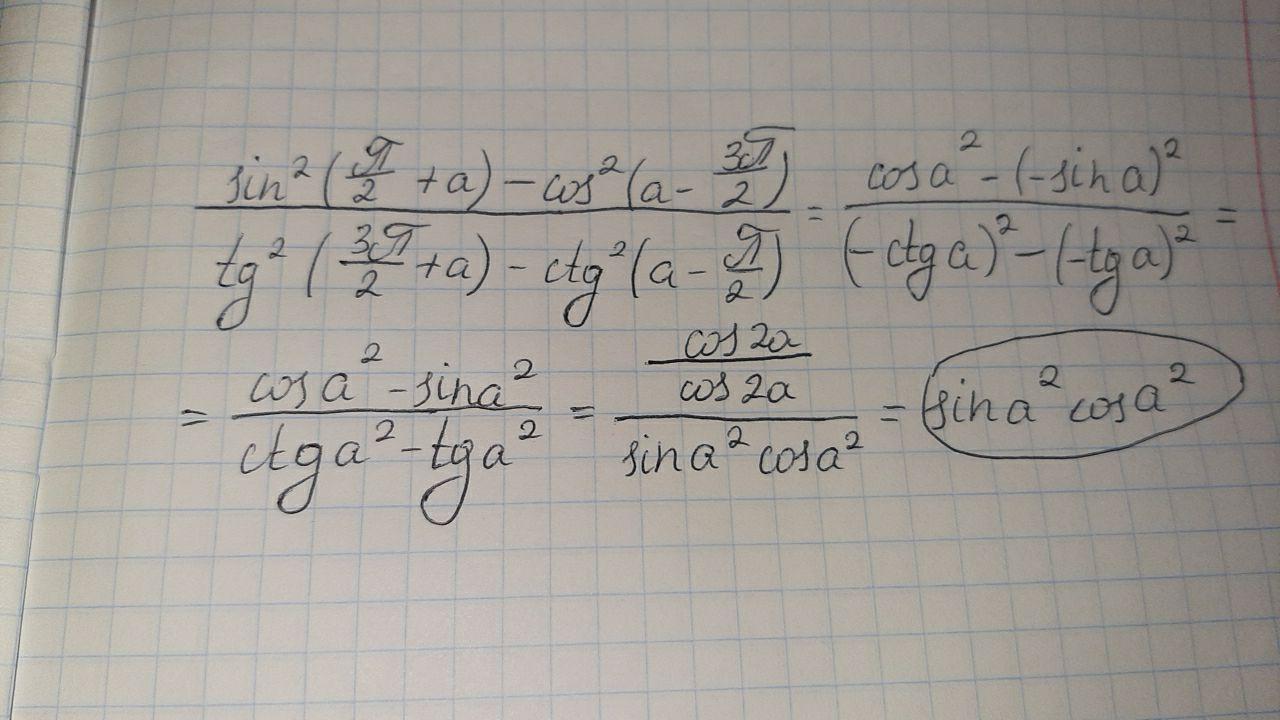 sin²(π/2 + a) - cos²(a - 3π/2) / tg²(3π/2 + a) - ctg²(a - π/2) = cos a² - (-sin a)² / (-ctg a)² - (-tg a)² =
= cos a² - sin a² / ctg a² - tg a² = cos 2a / cos 2a / sin a² cos a² = sin a² cos a²